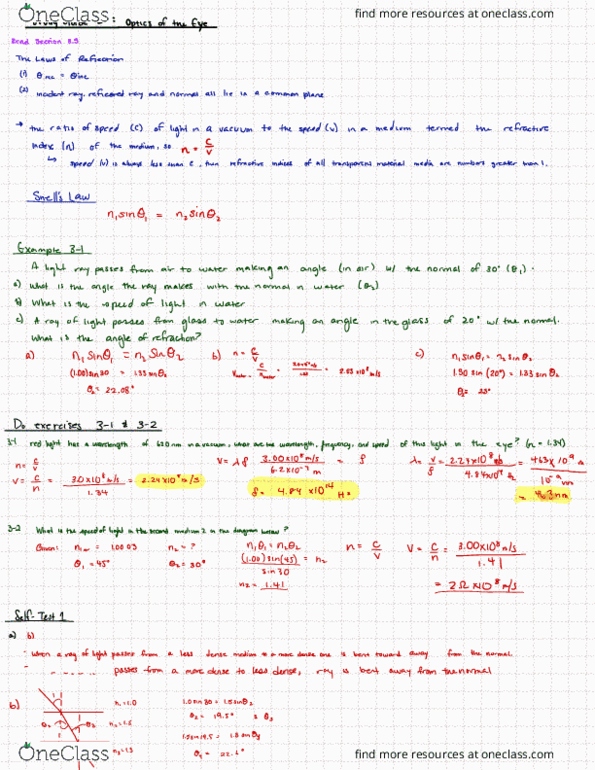 OneClass
find more resources at oneclass.com
: Optics of the Eye
Read Section 3.5
The Laws of Refraction
(1) θinc = θinc
(2) incident ray, refracted ray and normal all lie in a common plane
→ the ratio of speed (c) of light in a vacuum to the speed (v) in a medium termed the refractive
index (n) of the medium, so n = c/v
↳ speed (v) is always less than c, thus refractive indices of all transparent material media are numbers greater than 1.
Snell's Law
n₁sinθ₁ = n₂sinθ₂
Example 3-1
A light ray passes from air to water making an angle (in air) w/ the normal of 30° (θ₁).
a) What is the angle the ray makes with the normal in water (θ₂)
b) What is the speed of light in water
c) A ray of light passes from glass to water making an angle in the glass of 20° w/ the normal.
What is the angle of refraction?
a) n₁sinθ₁ = n₂sinθ₂
(1.00)sin30 = 1.33 sinθ₂
θ₂ = 22.08°
b) n = c/v
c) n₁sinθ₁ = n₂ sinθ₂
1.50 sin(20°) = 1.33 sinθ₂
Do exercises 3-1 & 3-2
3-1 red light has a wavelength of 620 nm in a vacuum, what are the wavelength, frequency, and speed of this light in the eye? (n = 1.34)
n = c/v
v = c/n = 3.0 x 10⁸ m/s / 1.34 = 2.24 x 10⁸ m/s
v = λf 3.00 x 10⁸ m/s / 6.2 x 10⁻⁷ m = f
f = 4.84 x 10¹⁴ Hz
3-2 What is the speed of light in the second medium 2 in the diagram below?
Given: nair = 1.0003 n₂ = ?
θ₁ = 45° θ₂ = 30°
n₁θ₁ = n₂θ₂
(1.00) sin(45) / sin 30 = n₂
n₂ = 1.41
n = c/v
v = c/n = 3.00 x 10⁸ m/s / 1.41
Self-Test 1
a) b)
- When a ray of light passes from a less dense medium to a more dense one is bent toward away from the normal.
passes from a more dense to less dense, ray is bent away from the normal
b)
n₁ = 1.0
n₂ = 1.5
1.0 sin 30 = 1.5 sinθ₂
θ₂ = 19.5°
OneClass
find more resources at oneclass.com